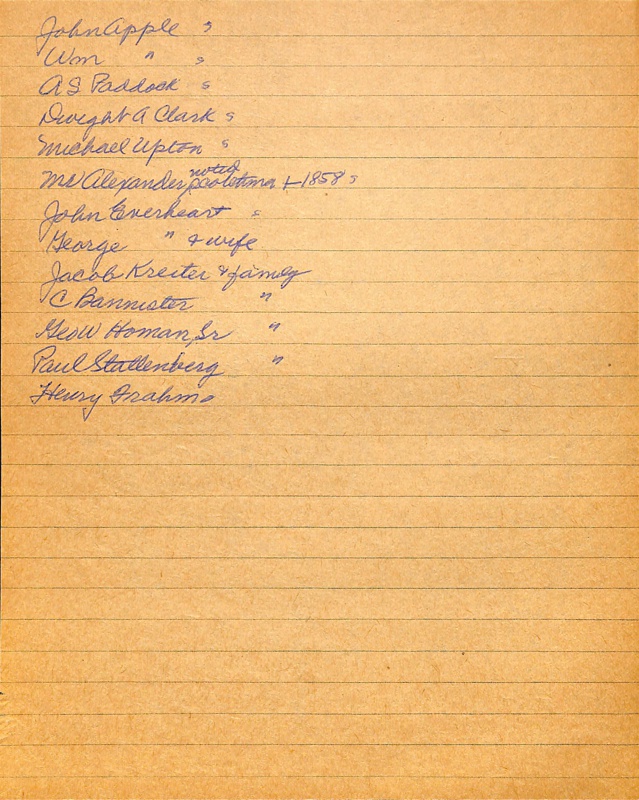 John Apple s
Wm " s
A S Paddock s
Dwight A Clark s
Michael Upton s
Mr Alexander noted 1858 s
John Everheart s
George " & wife
Jacob Kreiter & family
C Bannister "
Geo W Homan, Sr "
Paul Stallenberg "
Henry Frahms